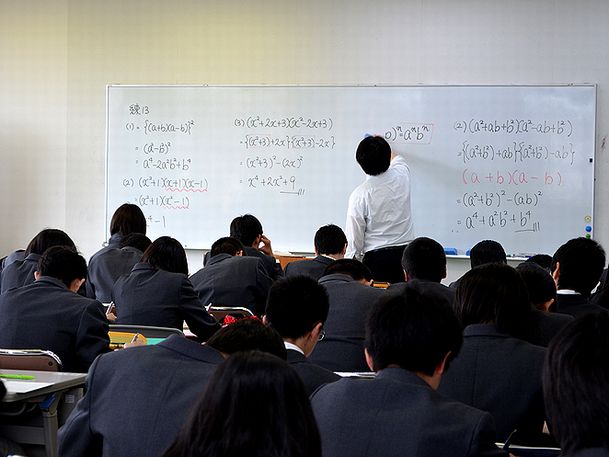 練13
(1) = {(a+b)(a-b)}²
= (a²-b²)²
= a⁴-2a²b²+b⁴
(2) = (x²+1)(x+1)(x-1)
= (x²+1)(x²-1)
⁴-1
(3) (x²+2x+3)(x²-2x+3)
= {(x²+3)+2x}{(x²+3)-2x}
= (x²+3)²-(2x)²
= x⁴+2x²+9
b)ⁿ=aⁿbⁿ
(2) (a²+ab+b²)(a²-ab+b²)
= {(a²+b²)+ab}{(a²+b²)-ab}
(a+b)(a-b)
= (a²+b²)²-(ab)²
= a⁴+a²b²+b⁴